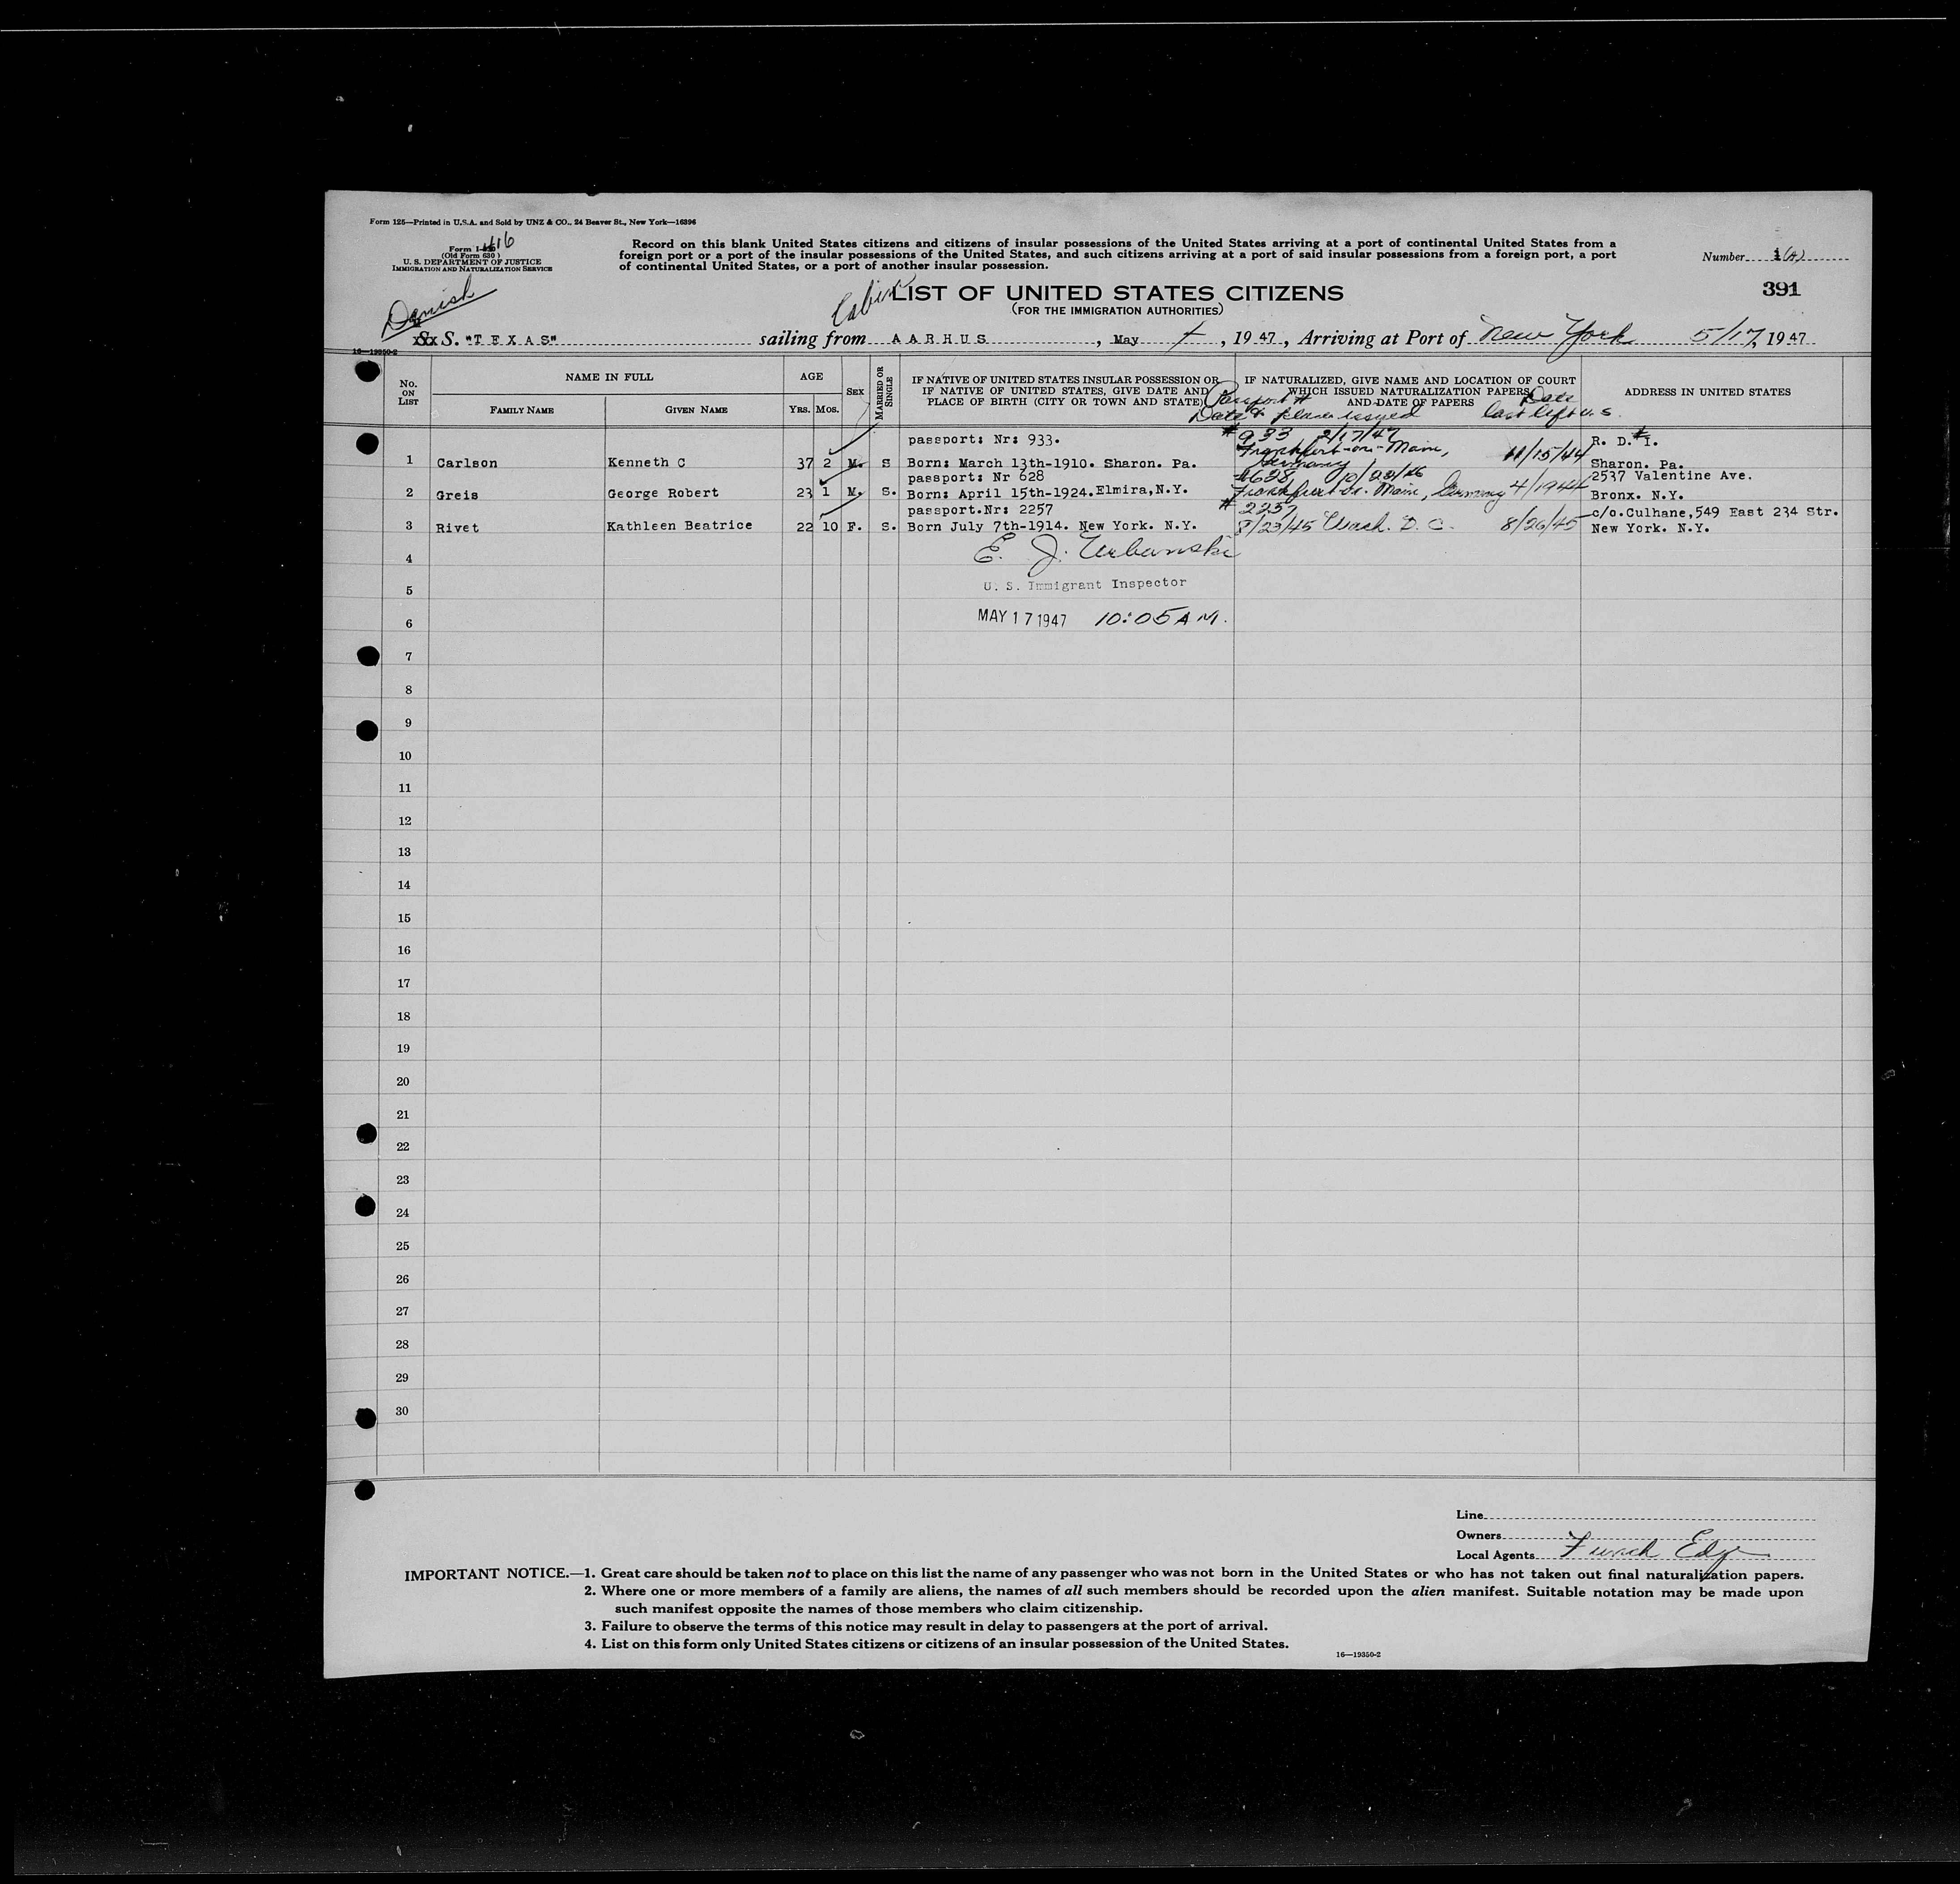 Form 125—Printed in U.S.A. and Sold by UNZ & CO., 24 Beaver St., New York—16396
Form I-416
(Old Form 630)
U. S. DEPARTMENT OF JUSTICE
IMMIGRATION AND NATURALIZATION SERVICE
Record on this blank United States citizens and citizens of insular possessions of the United States arriving at a port of continental United States from a
foreign port or a port of the insular possessions of the United States, and such citizens arriving at a port of said insular possessions from a foreign port, a port
of continental United States, or a port of another insular possession.
Number 1(A)
391
Danish
Cabin
LIST OF UNITED STATES CITIZENS
(FOR THE IMMIGRATION AUTHORITIES)
S. "TEXAS" sailing from AARHUS, May, 1947, Arriving at Port of New York 5/17, 1947
16—19350-2
No. ON LIST
NAME IN FULL
FAMILY NAME
GIVEN NAME
AGE
YRS. MOS.
SEX
MARRIED OR SINGLE
IF NATIVE OF UNITED STATES INSULAR POSSESSION OR
IF NATIVE OF UNITED STATES, GIVE DATE AND
PLACE OF BIRTH (CITY OR TOWN AND STATE)
IF NATURALIZED, GIVE NAME AND LOCATION OF COURT
WHICH ISSUED NATURALIZATION PAPERS,
AND DATE OF PAPERS
Passport #
Date & place issued
Date
last left U.S.
ADDRESS IN UNITED STATES
passport: Nr: 933. #933 2/17/47 R. D. #1.
1 Carlson Kenneth C 37 2 M. S Born: March 13th-1910. Sharon. Pa. Frankfurt-on-Main, Germany 11/15/44 Sharon. Pa.
passport: Nr 628 #628 2537 Valentine Ave.
2 Greis George Robert 23 1 M. S. Born: April 15th-1924. Elmira, N.Y. Frankfurt on Main, Germany 4/1944 Bronx. N.Y.
passport.Nr: 2257 #2257 c/o.Culhane,549 East 234 Str.
3 Rivet Kathleen Beatrice 22 10 F. S. Born July 7th-1914. New York. N.Y. 8/23/45 Wash. D. C. 8/26/45 New York. N.Y.
4 E. J. Urbanski
5 U. S. Immigrant Inspector
6 MAY 17 1947 10:05 AM.
7
8
9
10
11
12
13
14
15
16
17
18
19
20
21
22
23
24
25
26
27
28
29
30
Line
Owners
Local Agents Funch Edye
IMPORTANT NOTICE.—1. Great care should be taken not to place on this list the name of any passenger who was not born in the United States or who has not taken out final naturalization papers.
2. Where one or more members of a family are aliens, the names of all such members should be recorded upon the alien manifest. Suitable notation may be made upon
such manifest opposite the names of those members who claim citizenship.
3. Failure to observe the terms of this notice may result in delay to passengers at the port of arrival.
4. List on this form only United States citizens or citizens of an insular possession of the United States.
16—19350-2